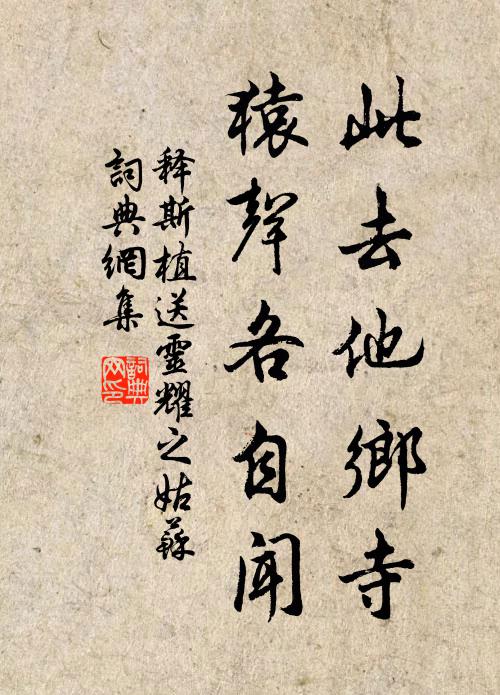 此去他鄉寺
猿聲各自聞
释斯植送靈耀之姑蘇
詞典網集
詞典网印